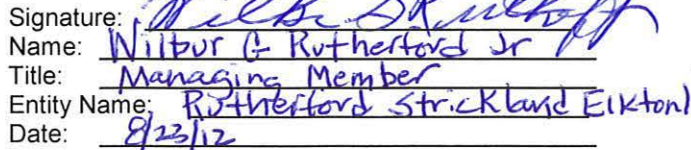 Signature:
Name: Wilbur G Rutherford Jr
Title: Managing Member
Entity Name: Rutherford Strickland Elkton
Date: 8/23/12